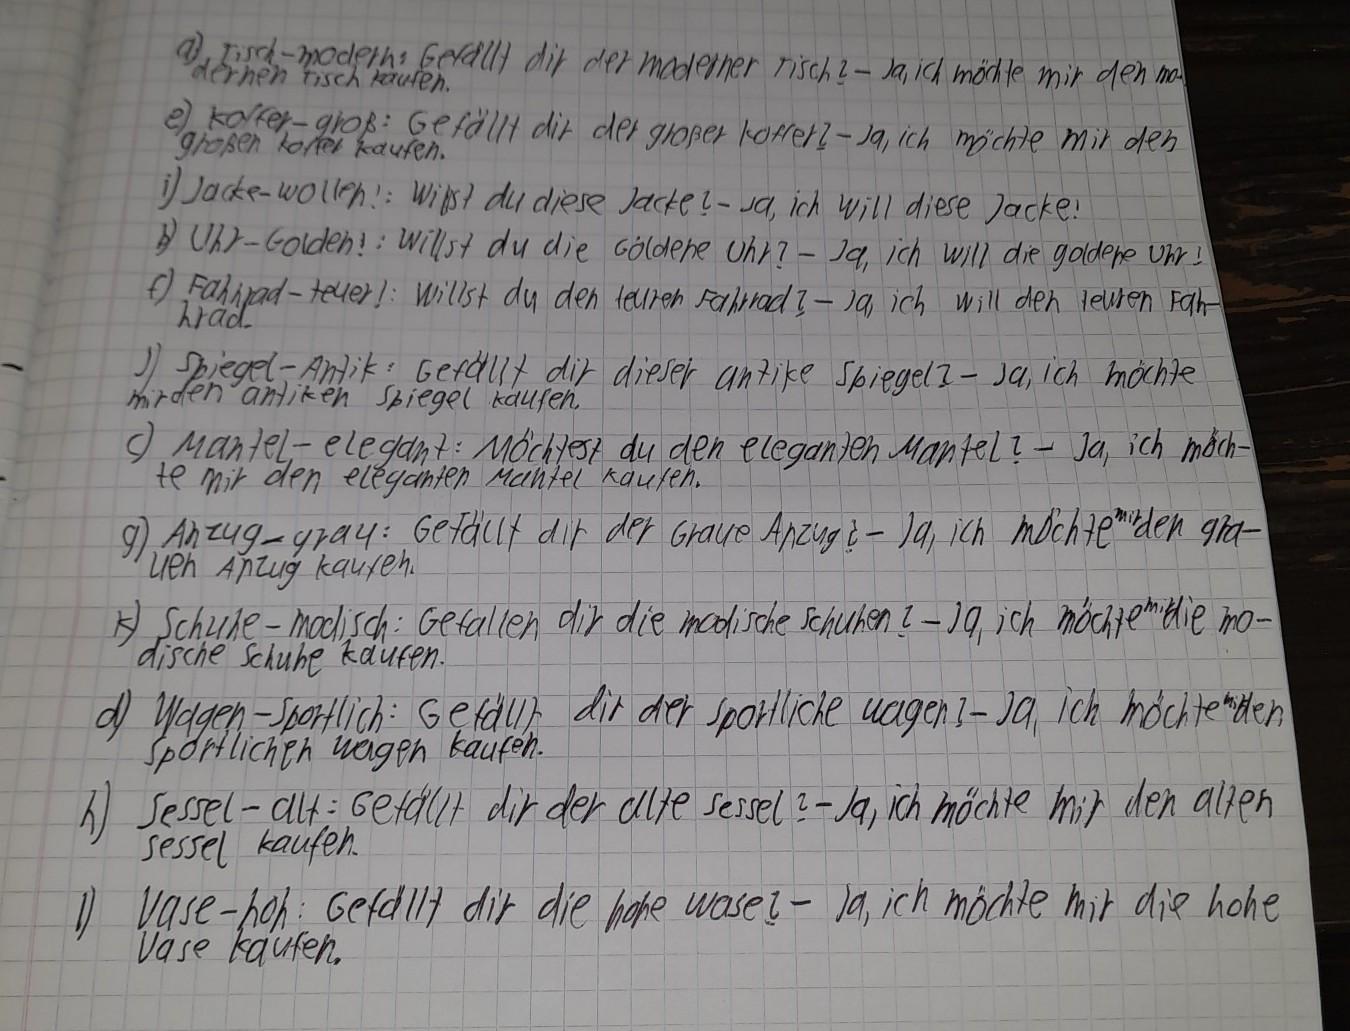 a) Tisch-modern: Gefällt dir der moderner Tisch? - Ja, ich möchte mir den mo-
dernen Tisch kaufen.
e) Koffer-groß: Gefällt dir der großer Koffer? - Ja, ich möchte mir den
großen Koffer kaufen.
i) Jacke-wollen!: Willst du diese Jacke? - Ja, ich will diese Jacke!
b) Uhr-Golden!: Willst du die Goldene Uhr? - Ja, ich will die goldene Uhr!
f) Fahrrad-teuer!: Willst du den teuren Fahrrad? - Ja, ich will den teuren Fah-
rrad.
j) Spiegel-Antik: Gefällt dir dieser antike Spiegel? - Ja, ich möchte
mir den antiken Spiegel kaufen.
c) Mantel-elegant: Möchtest du den eleganten Mantel? - Ja, ich möch-
te mir den eleganten Mantel kaufen.
g) Anzug-grau: Gefällt dir der Graue Anzug? - Ja, ich möchte mir den gra-
uen Anzug kaufen.
k) Schuhe-modisch: Gefallen dir die modische Schuhen? - Ja, ich möchte mir die mo-
dische Schuhe kaufen.
d) Wagen-Sportlich: Gefällt dir der sportliche wagen? - Ja, ich möchte mir den
sportlichen wagen kaufen.
h) Sessel-alt: Gefällt dir der alte sessel? - Ja, ich möchte mir den alten
sessel kaufen.
l) Vase-hoh: Gefällt dir die hohe wase? - Ja, ich möchte mir die hohe
Vase kaufen.